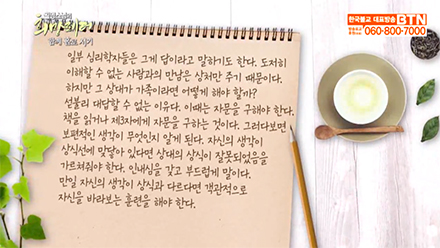 한국불교 대표방송 BTN
060-800-7000
함께 읽고 쓰기
일부 심리학자들은 그게 답이라고 말하기도 한다. 도저히
이해할 수 없는 사람과의 만남은 상처만 주기 때문이다.
하지만 그 상대가 가족이라면 어떻게 해야 할까?
섣불리 대답할 수 없는 이유다. 이때는 자문을 구해야 한다.
책을 읽거나 제3자에게 자문을 구하는 것이다. 그러다보면
보편적인 생각이 무엇인지 알게 된다. 자신의 생각이
상식선에 맞닿아 있다면 상대의 상식이 잘못되었음을
가르쳐줘야 한다. 인내심을 갖고 부드럽게 말이다.
만일 자신의 생각이 상식과 다르다면 객관적으로
자신을 바라보는 훈련을 해야 한다.